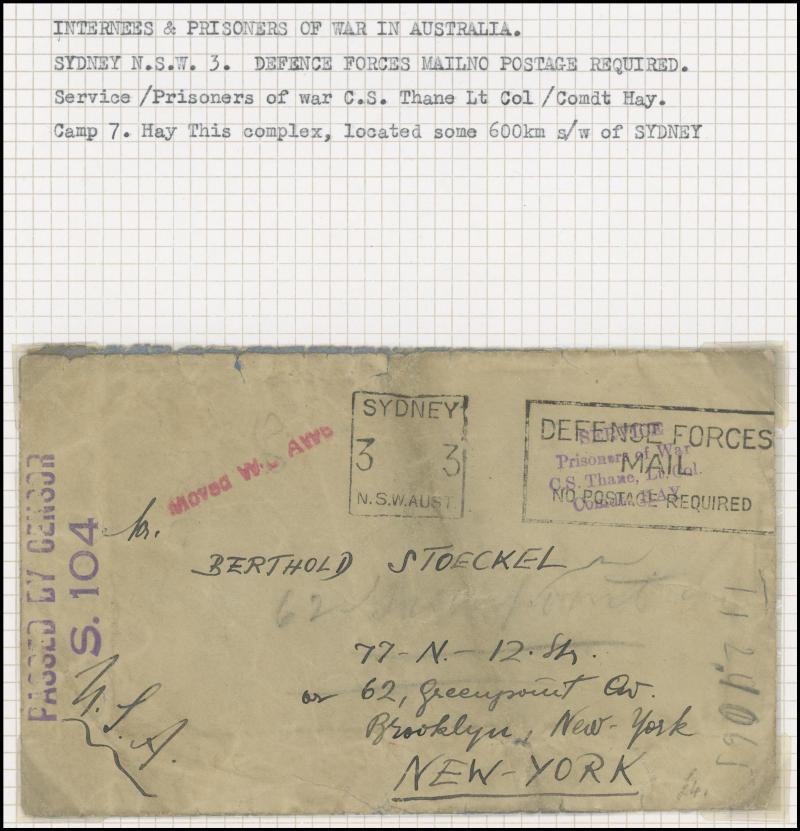 INTERNEES & PRISONERS OF WAR IN AUSTRALIA.
SYDNEY N.S.W. 3. DEFENCE FORCES MAILNO POSTAGE REQUIRED.
Service /Prisoners of war C.S. Thane Lt Col /Comdt Hay.
Camp 7. Hay This complex, located some 600km s/w of SYDNEY
SYDNEY
3 3
N.S.W.AUST.
DEFENCE FORCES
MAIL
NO POSTAGE REQUIRED
SERVICE
Prisoners of War
C.S. Thane, Lt. Col.
HAY
Moved
PASSED BY CENSOR
S. 104
BERTHOLD STOECKEL
62
77-N.-12.Str.
or 62, Greenpoint Av.
Brooklyn, New-York
NEW-YORK
U.S.A.
24.